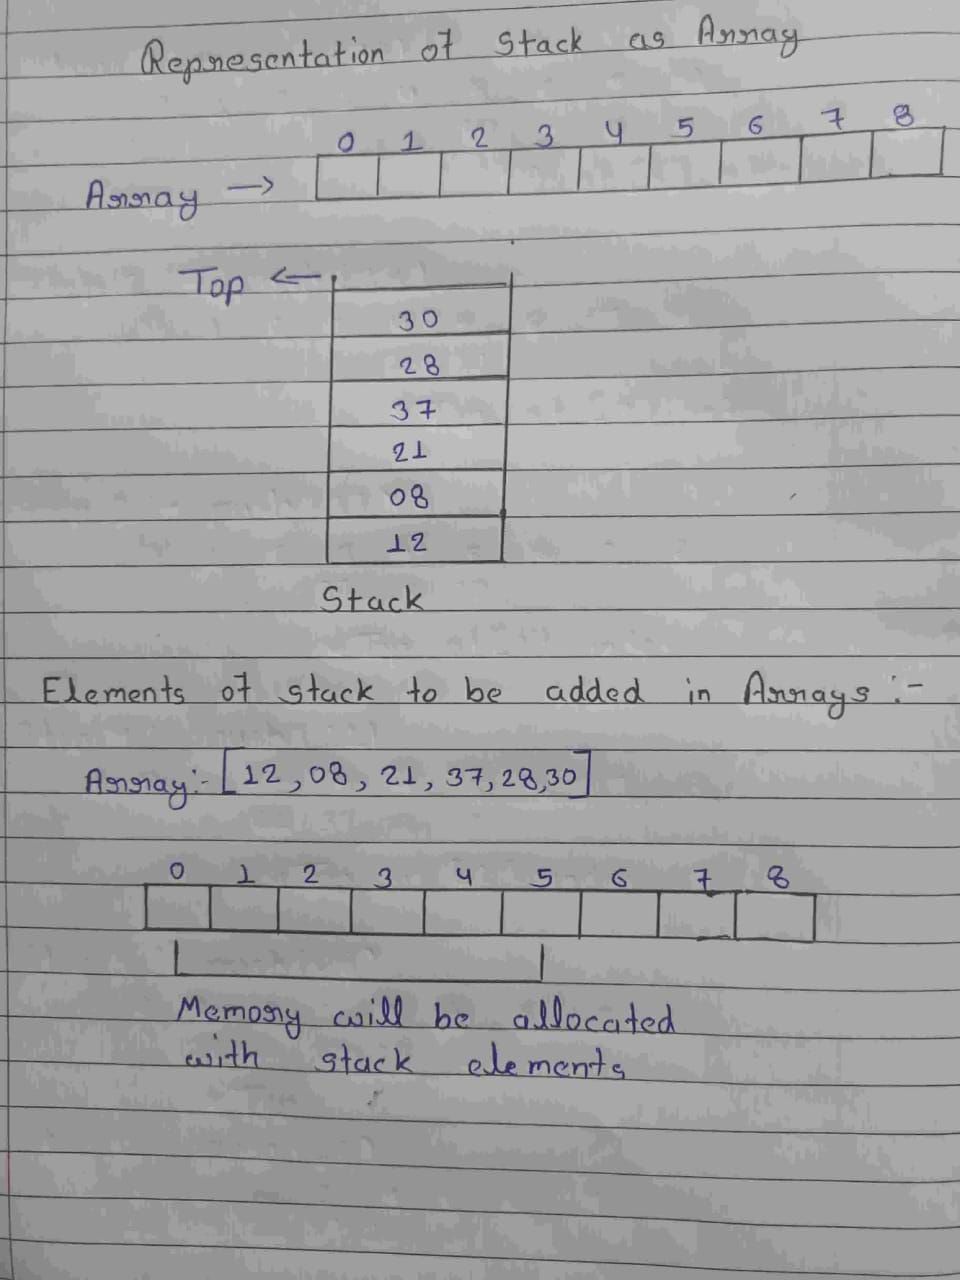 Representation of Stack as Array
0 1 2 3 4 5 6 7 8
Array →
Top ←
30
28
37
21
08
12
Stack
Elements of stack to be added in Arrays :-
Array:- [12, 08, 21, 37, 28, 30]
0 1 2 3 4 5 6 7 8
Memory will be allocated
with stack elements